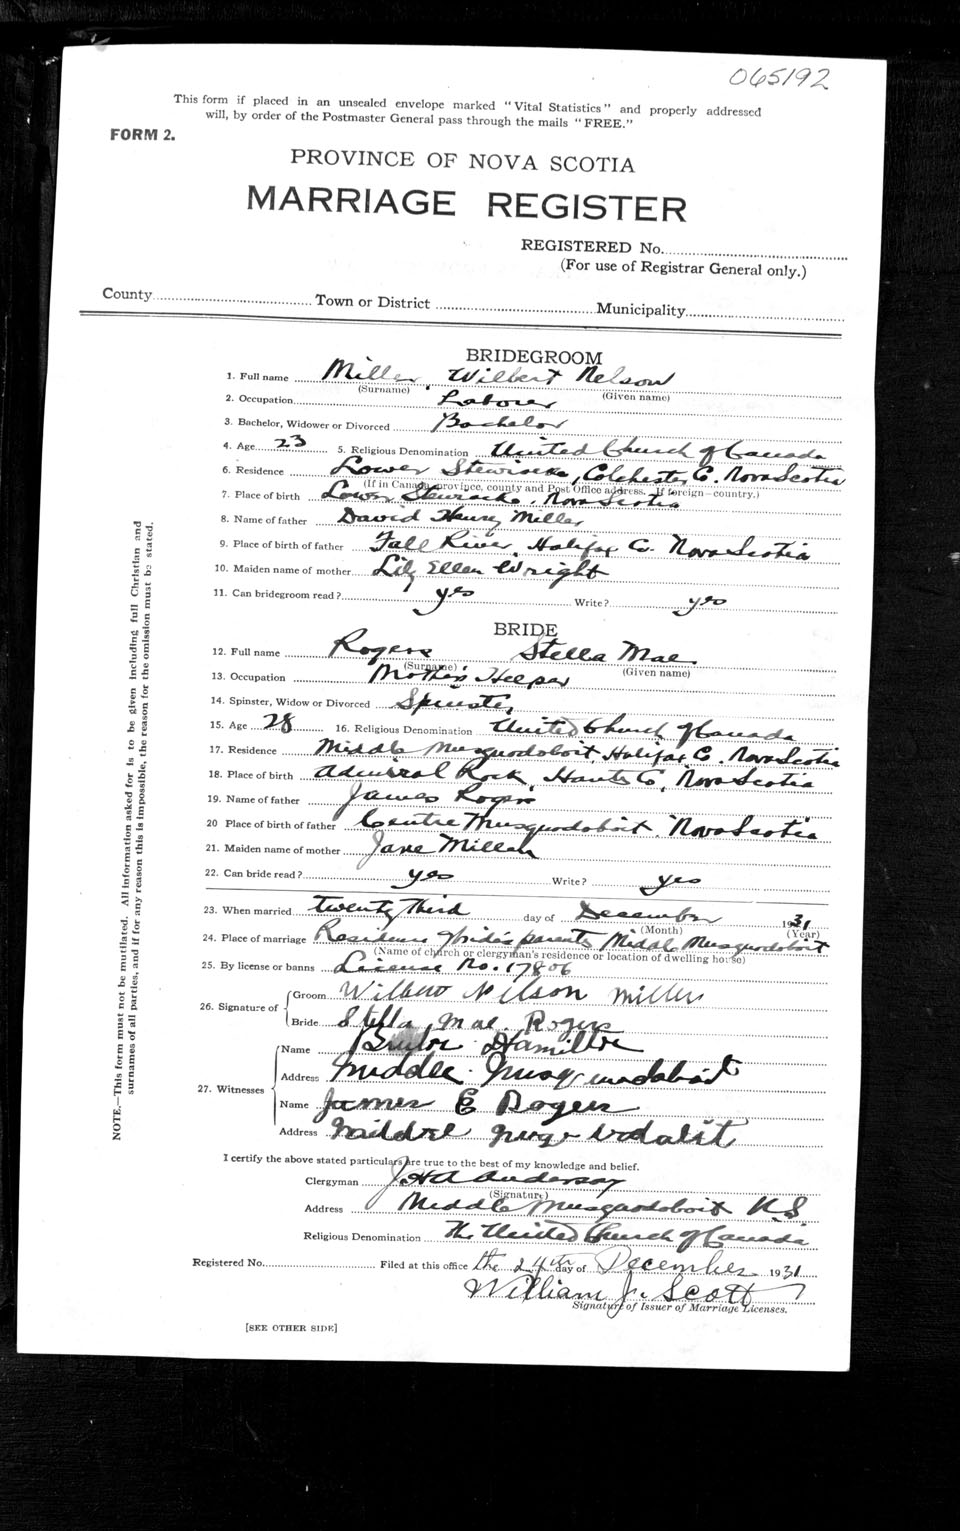 065192
This form if placed in an unsealed envelope marked "Vital Statistics" and properly addressed
will, by order of the Postmaster General pass through the mails "FREE."
FORM 2.
PROVINCE OF NOVA SCOTIA
MARRIAGE REGISTER
REGISTERED No.
(For use of Registrar General only.)
County Town or District Municipality
BRIDEGROOM
1. Full name Miller, Wilbert Nelson
(Surname) (Given name)
2. Occupation Laborer
3. Bachelor, Widower or Divorced Bachelor
4. Age 23 5. Religious Denomination United Church of Canada
6. Residence Lower Stewiacke, Colchester Co. Nova Scotia
(If in Canada, province, county and Post Office address. If foreign—country.)
7. Place of birth Lower Stewiacke, Nova Scotia
8. Name of father David Henry Miller
9. Place of birth of father Fall River, Halifax Co. Nova Scotia
10. Maiden name of mother Lily Ellen Wright
11. Can bridegroom read? yes Write? yes
BRIDE
12. Full name Rogers Stella Mae
(Surname) (Given name)
13. Occupation Mother's Helper
14. Spinster, Widow or Divorced Spinster
15. Age 28 16. Religious Denomination United Church of Canada
17. Residence Middle Musquodoboit, Halifax Co. Nova Scotia
18. Place of birth Admiral Rock, Hants Co, Nova Scotia
19. Name of father James Rogers
20 Place of birth of father Centre Musquodoboit, Nova Scotia
21. Maiden name of mother Jane Millah
22. Can bride read? yes Write? yes
23. When married twenty Third day of December 1931
(Month) (Year)
24. Place of marriage Residence of bride's parents Middle Musquodoboit
(Name of church or clergyman's residence or location of dwelling house)
25. By license or banns License No. 17806
26. Signature of Groom Wilbert Nilson Miller
Bride Stella Mae Rogers
27. Witnesses Name Hamilton
Address Middle Musquodoboit
Name James E Rogers
Address
I certify the above stated particulars are true to the best of my knowledge and belief.
Clergyman Anderson
(Signature)
Address Middle Musquodoboit N.S
Religious Denomination The United Church of Canada
Registered No. Filed at this office the 24th day of December 1931
William J. Scott
Signature of Issuer of Marriage Licenses.
[SEE OTHER SIDE]
NOTE.—This form must not be mutilated. All information asked for is to be given including full Christian and
surnames of all parties, and if for any reason this is impossible, the reason for the omission must be stated.